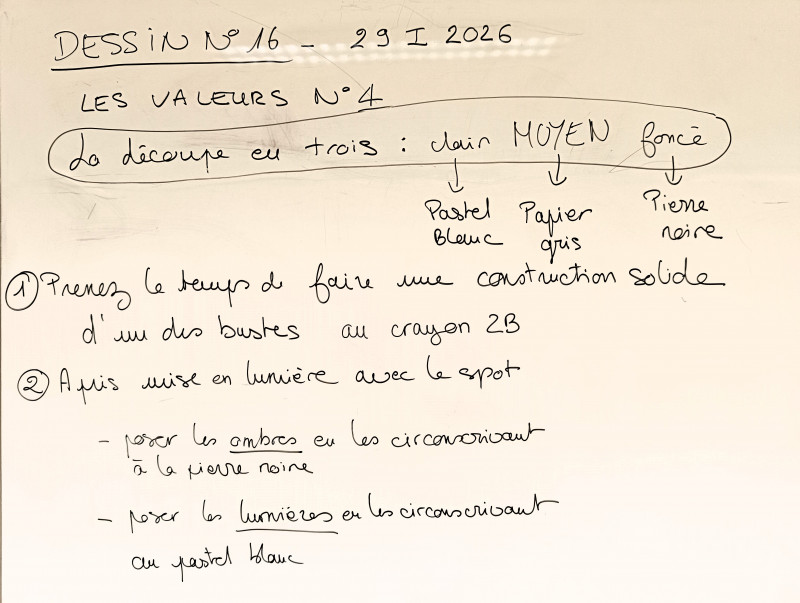 DESSIN N° 16 - 29 I 2026
LES VALEURS N° 4
La découpe en trois : clair MOYEN foncé
Pastel Blanc
Papier gris
Pierre noire
① Prenez le temps de faire une construction solide
d'un des bustes au crayon 2B
② Apris mise en lumière avec le spot
- poser les ombres en les circonscrivant
à la pierre noire
- poser les lumières en les circonscrivant
au pastel blanc